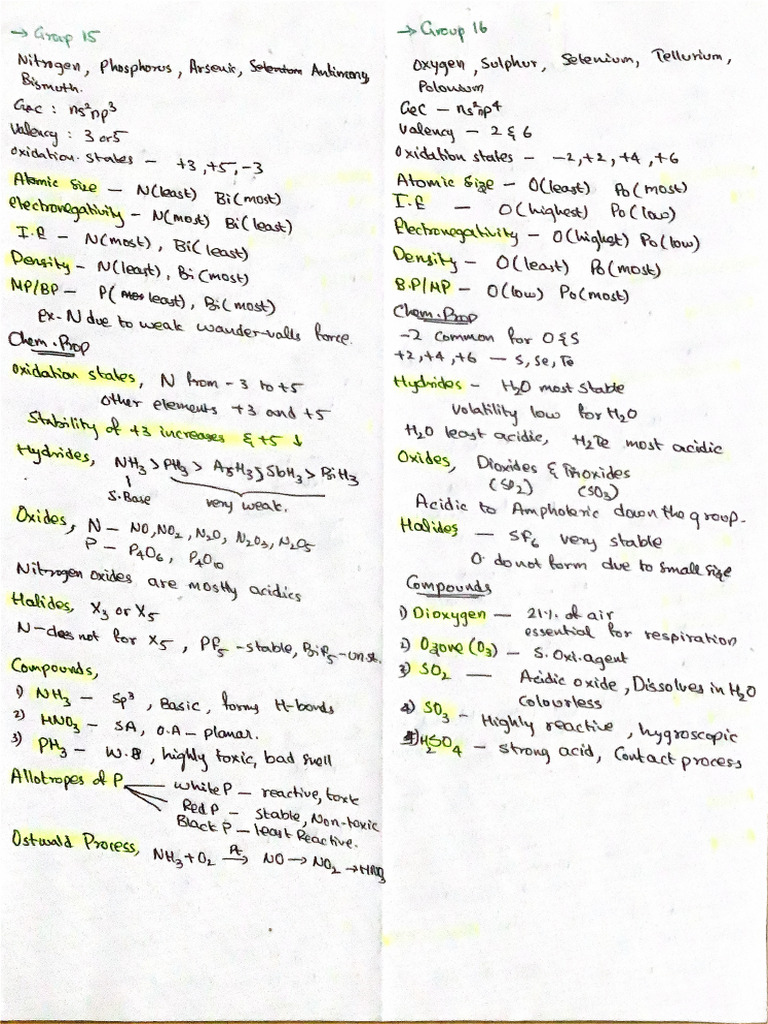 → Group 15
Nitrogen, Phosphorus, Arsenic, Selenium Antimony,
Bismuth.
GeC : ns²np³
Valency : 3 or 5
Oxidation. states – +3, +5, -3
Atomic Size – N(least) Bi(most)
electronegativity – N(most) Bi(least)
I.E – N(most), Bi(least)
Density – N(least), Bi(most)
MP/BP – P(least), Bi(most)
ex-N due to weak wander-valls force.
Chem. Prop
Oxidation states, N from -3 to +5
other elements +3 and +5
Stability of +3 increases & +5 ↓
Hydrides, NH3 > PH3 > AsH3 > SbH3 > BiH3
S.Base very weak.
Oxides, N – NO, NO2, N2O, N2O3, N2O5
P – P4O6, P4O10
Nitrogen oxides are mostly acidics
Halides, X3 or X5
N–does not for X5, PF5 -stable, BiF5-unst.
Compounds,
1) NH3 – Sp³, Basic, forms H-bonds
2) HNO3 – SA, O.A – planar.
3) PH3 – W.B, highly toxic, bad smell
Allotropes of P
White P – reactive, toxic
Red P – Stable, Non-toxic
Black P – least Reactive.
Ostwald Process, NH3 + O2 Pt→ NO → NO2 → HNO3
→ Group 16
Oxygen, Sulphur, Selenium, Tellurium,
Polonium
GeC – ns²np⁴
Valency – 2 & 6
Oxidation states – -2, +2, +4, +6
Atomic Size – O(least) Po(most)
I.E – O(highest) Po(low)
Electronegativity – O(highest) Po(low)
Density – O(least) Po(most)
B.P/MP – O(low) Po(most)
Chem. Prop
-2 common for O & S
+2, +4, +6 – S, Se, Te
Hydrides – H2O most stable
Volatility low for H2O
H2O least acidic, H2Te most acidic
Oxides, Dioxides & Trioxides
(SO2) (SO3)
Acidic to Amphoteric down the group.
Halides – SF6 very stable
O do not form due to small size
Compounds
1) Dioxygen – 21% of air
essential for respiration
2) Ozone (O3) – S. Oxi.agent
3) SO2 – Acidic oxide, Dissolves in H2O
Colourless
4) SO3 – Highly reactive, hygroscopic
5) H2SO4 – strong acid, Contact process